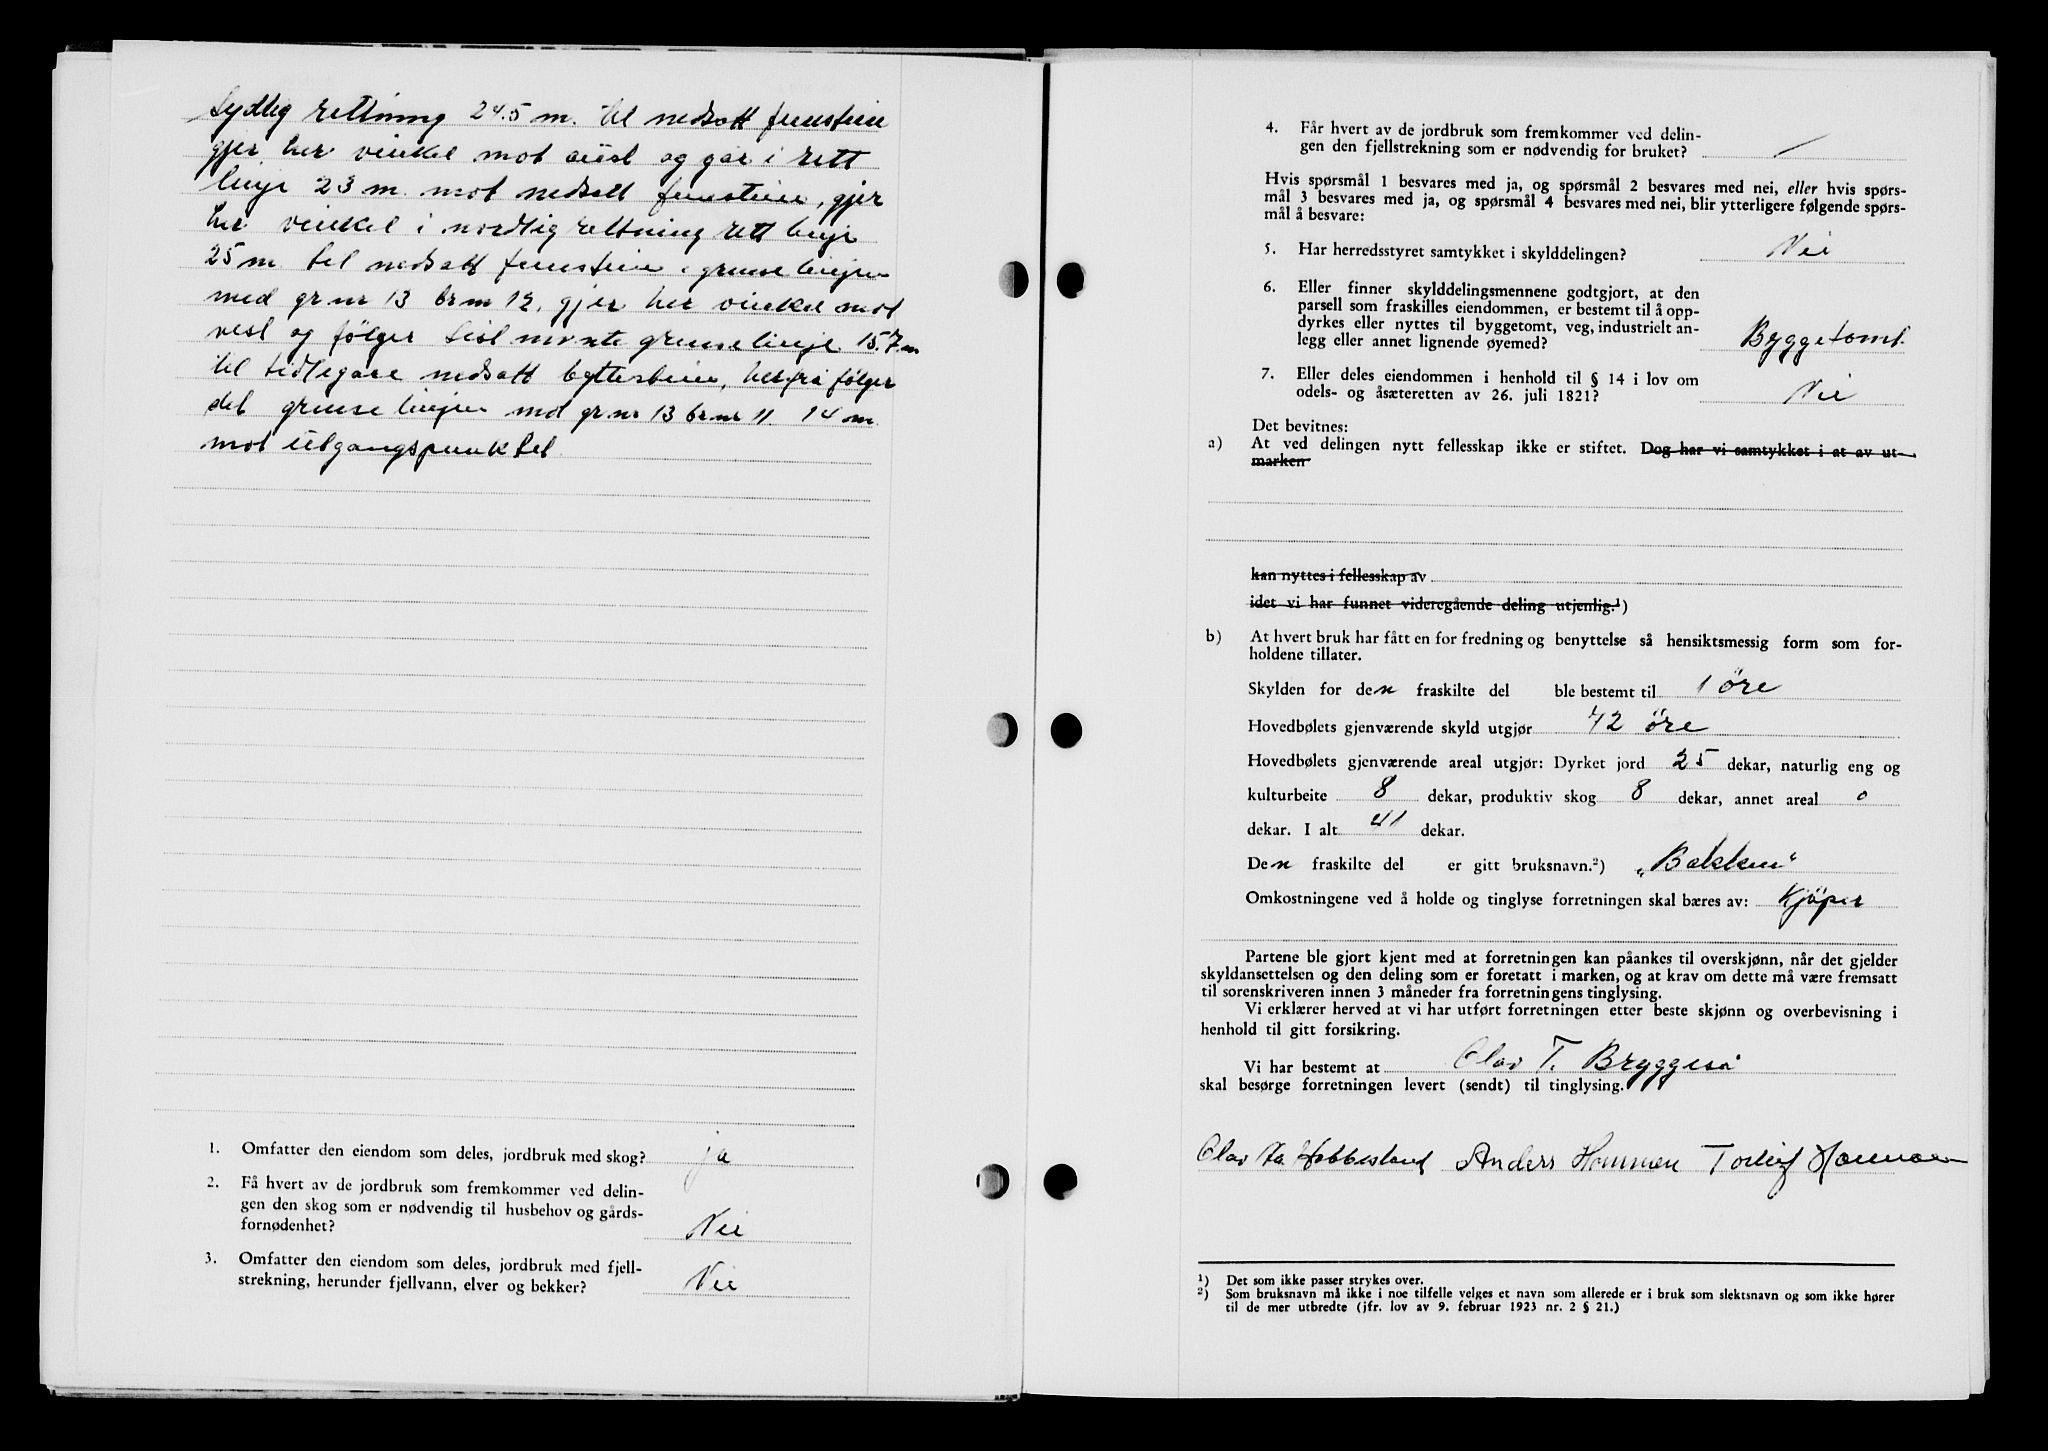 sydlig rettning 24.5 m. til nedsatt
gjer her vinkel mot aust og går i rett
linje 23 m. mot nedsatt, gjer
her vinkel i nordlig rettning rett linje
25 m til nedsatt i grense linjen
med gr nr 13 br nr 12, gjer her vinkel mot
vest og følger sist nevnte grense linje 15.7 m
til tidlegare nedsatt byttestein, herfra følger
det grense linjen mot gr nr 13 br nr 11 14 m
mot utgangspunktet
1. Omfatter den eiendom som deles, jordbruk med skog? ja
2. Få hvert av de jordbruk som fremkommer ved delin-
gen den skog som er nødvendig til husbehov og gårds-
fornødenhet? Nei
3. Omfatter den eiendom som deles, jordbruk med fjell-
strekning, herunder fjellvann, elver og bekker? Nei
4. Får hvert av de jordbruk som fremkommer ved delin-
gen den fjellstrekning som er nødvendig for bruket? /
Hvis spørsmål 1 besvares med ja, og spørsmål 2 besvares med nei, eller hvis spørs-
mål 3 besvares med ja, og spørsmål 4 besvares med nei, blir ytterligere følgende spørs-
mål å besvare:
5. Har herredsstyret samtykket i skylddelingen? Nei
6. Eller finner skylddelingsmennene godtgjort, at den
parsell som fraskilles eiendommen, er bestemt til å opp-
dyrkes eller nyttes til byggetomt, veg, industrielt an-
legg eller annet lignende øyemed? Byggetomt
7. Eller deles eiendommen i henhold til § 14 i lov om
odels- og åsæteretten av 26. juli 1821? Nei
Det bevitnes:
a) At ved delingen nytt fellesskap ikke er stiftet. Dog har vi samtykket i at av ut-
marken
kan nyttes i fellesskap av
idet vi har funnet videregående deling utjenlig.¹)
b) At hvert bruk har fått en for fredning og benyttelse så hensiktsmessig form som for-
holdene tillater.
Skylden for den fraskilte del ble bestemt til 1 öre
Hovedbølets gjenværende skyld utgjør 72 öre
Hovedbølets gjenværende areal utgjør: Dyrket jord 25 dekar, naturlig eng og
kulturbeite 8 dekar, produktiv skog 8 dekar, annet areal 0
dekar. I alt 41 dekar.
Den fraskilte del er gitt bruksnavn.²) „Bakken"
Omkostningene ved å holde og tinglyse forretningen skal bæres av: Kjöper
Partene ble gjort kjent med at forretningen kan påankes til overskjønn, når det gjelder
skyldansettelsen og den deling som er foretatt i marken, og at krav om dette må være fremsatt
til sorenskriveren innen 3 måneder fra forretningens tinglysing.
Vi erklærer herved at vi har utført forretningen etter beste skjønn og overbevisning i
henhold til gitt forsikring.
Vi har bestemt at Olav T. Bryggeså
skal besørge forretningen levert (sendt) til tinglysing.
Olav Ta. Hobbesland Anders Hommen Torleif
¹) Det som ikke passer strykes over.
²) Som bruksnavn må ikke i noe tilfelle velges et navn som allerede er i bruk som slektsnavn og som ikke hører
til de mer utbredte (jfr. lov av 9. februar 1923 nr. 2 § 21.)